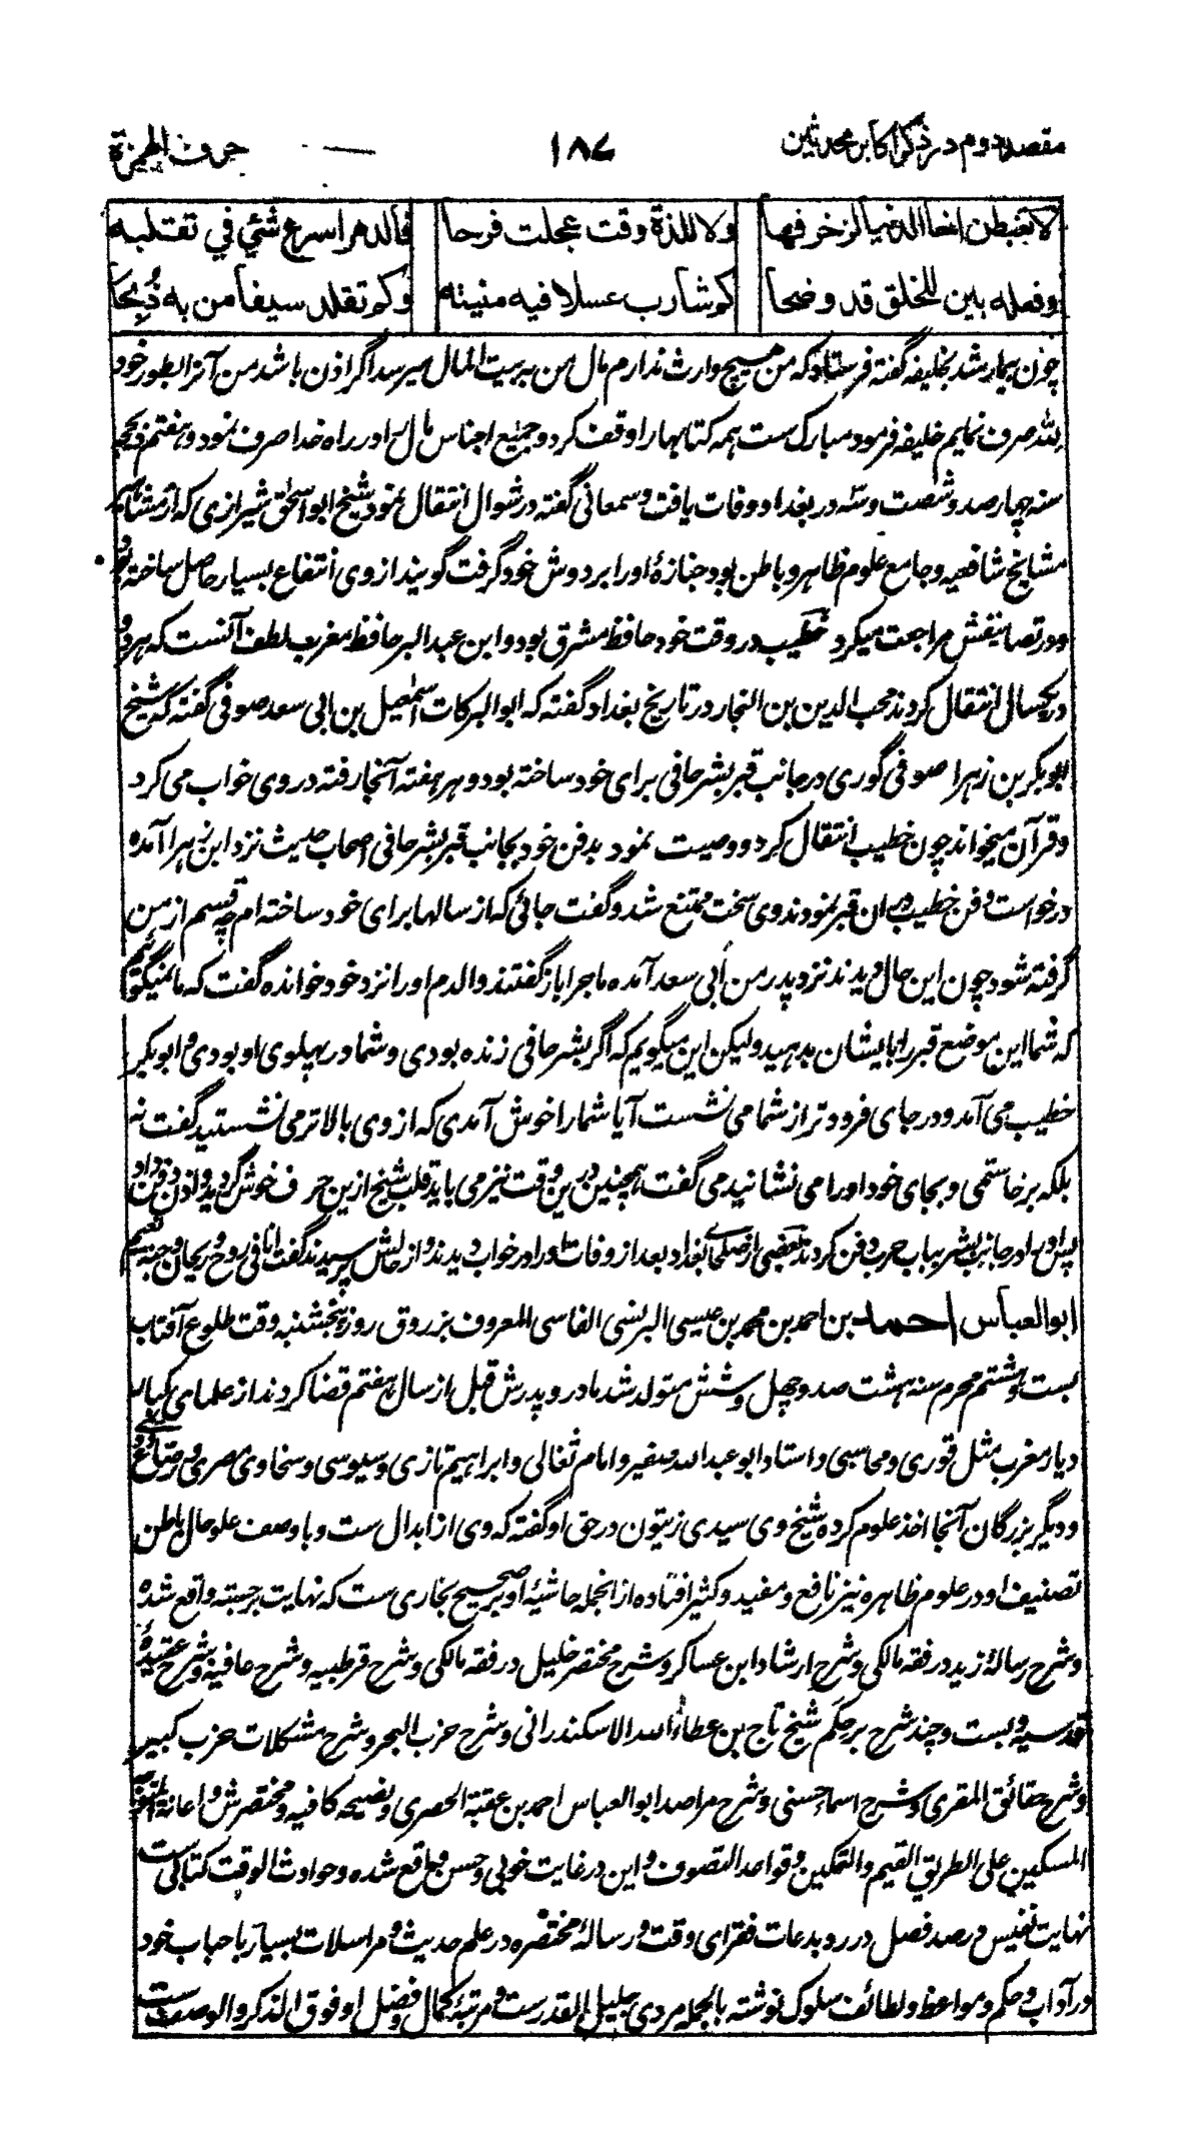 مقصد دوم در ذکر اکابر محدثین ۱۸۷ حرف الهمزة
لا تغبطن اخا الدنيا لزخرفها ولا للذة وقت عجلت فرحا فالدهر اسرع شئي في تقلبه
وفعله بين للخلق قد وضحا كم شارب عسلا فيه منيته وكم تقلد سيفا من به ذُبِحَا
چون بیمار شد بخلیفه گفته فرستاد که من هیچ وارث ندارم مال من به بیت المال میرسد اگر اذن باشد من آنرا بطور خود
لله صرف نمایم خلیفه فرمود مبارک ست همه کتابها را وقف کرد و جمیع اجناس مال را در راه خدا صرف نمود و هفتم ذیحجه
سنه چهار صد و شصت و سه در بغداد وفات یافت و سمعانی گفته در شوال انتقال نمود شیخ ابو اسحق شیرازی که از مشاهیر
مشایخ شافعیه و جامع علوم ظاهر و باطن بود جنازهٔ او را بر دوش خود گرفت گویند از وی انتفاع بسیار حاصل ساخته بود
و در تصانیفش مراجعت میکرد خطیب در وقت خود حافظ مشرق بود و ابن عبد البر حافظ مغرب لطف آنست که هر دو
در یکسال انتقال کردند محب الدین بن النجار در تاریخ بغداد گفته که ابو البرکات اسمعیل بن ابی سعد صوفی گفته که شیخ
ابو بکر بن زهرا صوفی گوری در جانب قبر بشر حافی برای خود ساخته بود و هر هفته آنجا رفته در وی خواب می کرد
و قرآن میخواند چون خطیب انتقال کرد و وصیت نمود بدفن خود بجانب قبر بشر حافی اصحاب حدیث نزد ابن زهرا آمده
درخواست دفن خطیب در ان قبر نمودند وی سخت ممتنع شد و گفت جائی که از سالها برای خود ساخته ام چه قسم از من
گرفته شود چون این حال دیدند نزد پدر من أبی سعد آمده ماجرا باز گفتند والدم او را نزد خود خوانده گفت که ما نمیگوئیم
که شما این موضع قبر را بایشان بدهید و لیکن این میگویم که اگر بشر حافی زنده بودی و شما در پهلوی او بودی و ابو بکر
خطیب می آمد و در جای فرود تر از شما می نشست آیا شما را خوش آمدی که از وی بالاتر می نشستید گفت نه
بلکه بر خاستمی و بجای خود او را می نشانیدمی گفت همچنین درین وقت نیز می باید قلب شیخ ازین حرف خوش گردید و اذن دفن داد
پس او را در جانب بشر بباب حرب دفن کردند بعضی از صلحای بغداد بعد از وفات او را در خواب دیدند و از حالش پرسیدند گفت انا فی روح و ریحان و جنة نعیم
ابو العباس احمد بن احمد بن محمد بن عیسی البرنسی الفاسی المعروف بزروق روز پنجشنبه وقت طلوع آفتاب
بست و هشتم محرم سنه هشت صد و چهل و شش متولد شد مادر و پدرش قبل از سال هفتم قضا کردند از علمای کبار
دیار مغرب مثل قوری و محاسبی و استاد ابو عبد الله صغیر و امام ثعالی و ابراهیم تازی و سیوسی و سخاوی مصری و
و دیگر بزرگان آنجا اخذ علوم کرده شیخ وی سیدی زیتون در حق او گفته که وی از ابدال ست و با وصف علو حال باطن
تصنیف او در علوم ظاهره نیز نافع و مفید و کثیر افتاده از انجمله حاشیه او بر صحیح بخاری ست که نهایت برجسته واقع شده
و شرح رسالهٔ زید در فقه مالکی و شرح ارشاد ابن عساکر و شرح مختصر خلیل در فقه مالکی و شرح قرطبیه و شرح عافیه و شرح عقیدهٔ
قدسیه و بست و چند شرح بر حکم شیخ تاج بن عطاءالله الاسکندرانی و شرح حزب البحر و شرح مشکلات حزب کبیر
و شرح حقائق المقری و شرح اسماء حسنی و شرح مراصد ابو العباس احمد بن عقبة الحصری و نصیحه کافیه و مختصرش و اعانة المتوجه
المسکین علی الطریق القیم والتمکین و قواعد التصوف و این در غایت خوبی و حسن واقع شده و حوادث الوقت کتابی ست
نهایت نفیس در صد فصل در رد بدعات فقرای وقت و رسالهٔ مختصره در علم حدیث و مراسلات بسیار باحباب خود
در آداب و حکم و مواعظ و لطائف سلوک نوشته بالجمله مردی جلیل القدر ست و مرتبهٔ کمال و فضل او فوق الذکر و الوصف ست